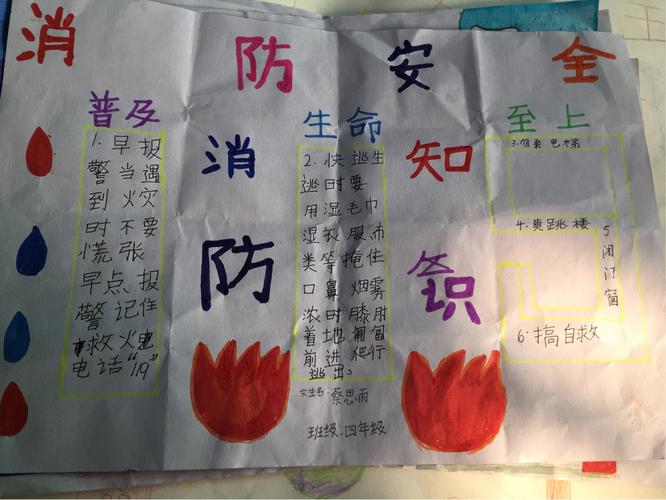 消防安全
普及
1.早报
警当遇
到火灾
时不要
慌张
早点报
警记住
救火
电话"119"
消防
生命
2.快逃生
逃时要
用湿毛巾
湿衣服布
类等掩住
口鼻烟雾
浓时膝肘
着地匍匐
前进爬行
逃出。
蔡思雨
班级:四年级
知识
至上
电梯
4.莫跳楼
5闭门窗
6.搞自救